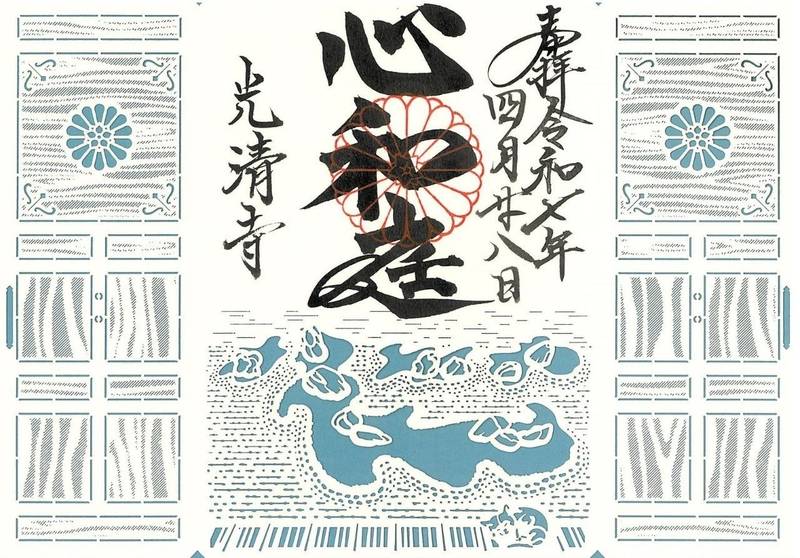 奉拝 令和七年
四月廿八日
心和庭
光清寺